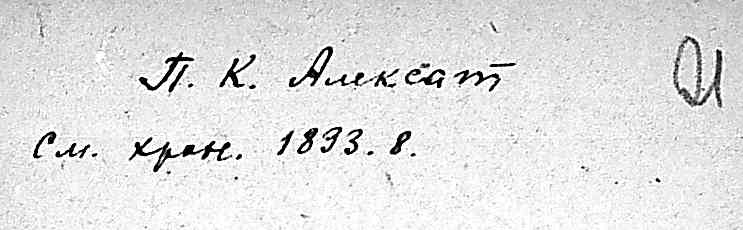 П. К. Алексат
См. хрон. 1893. 8.